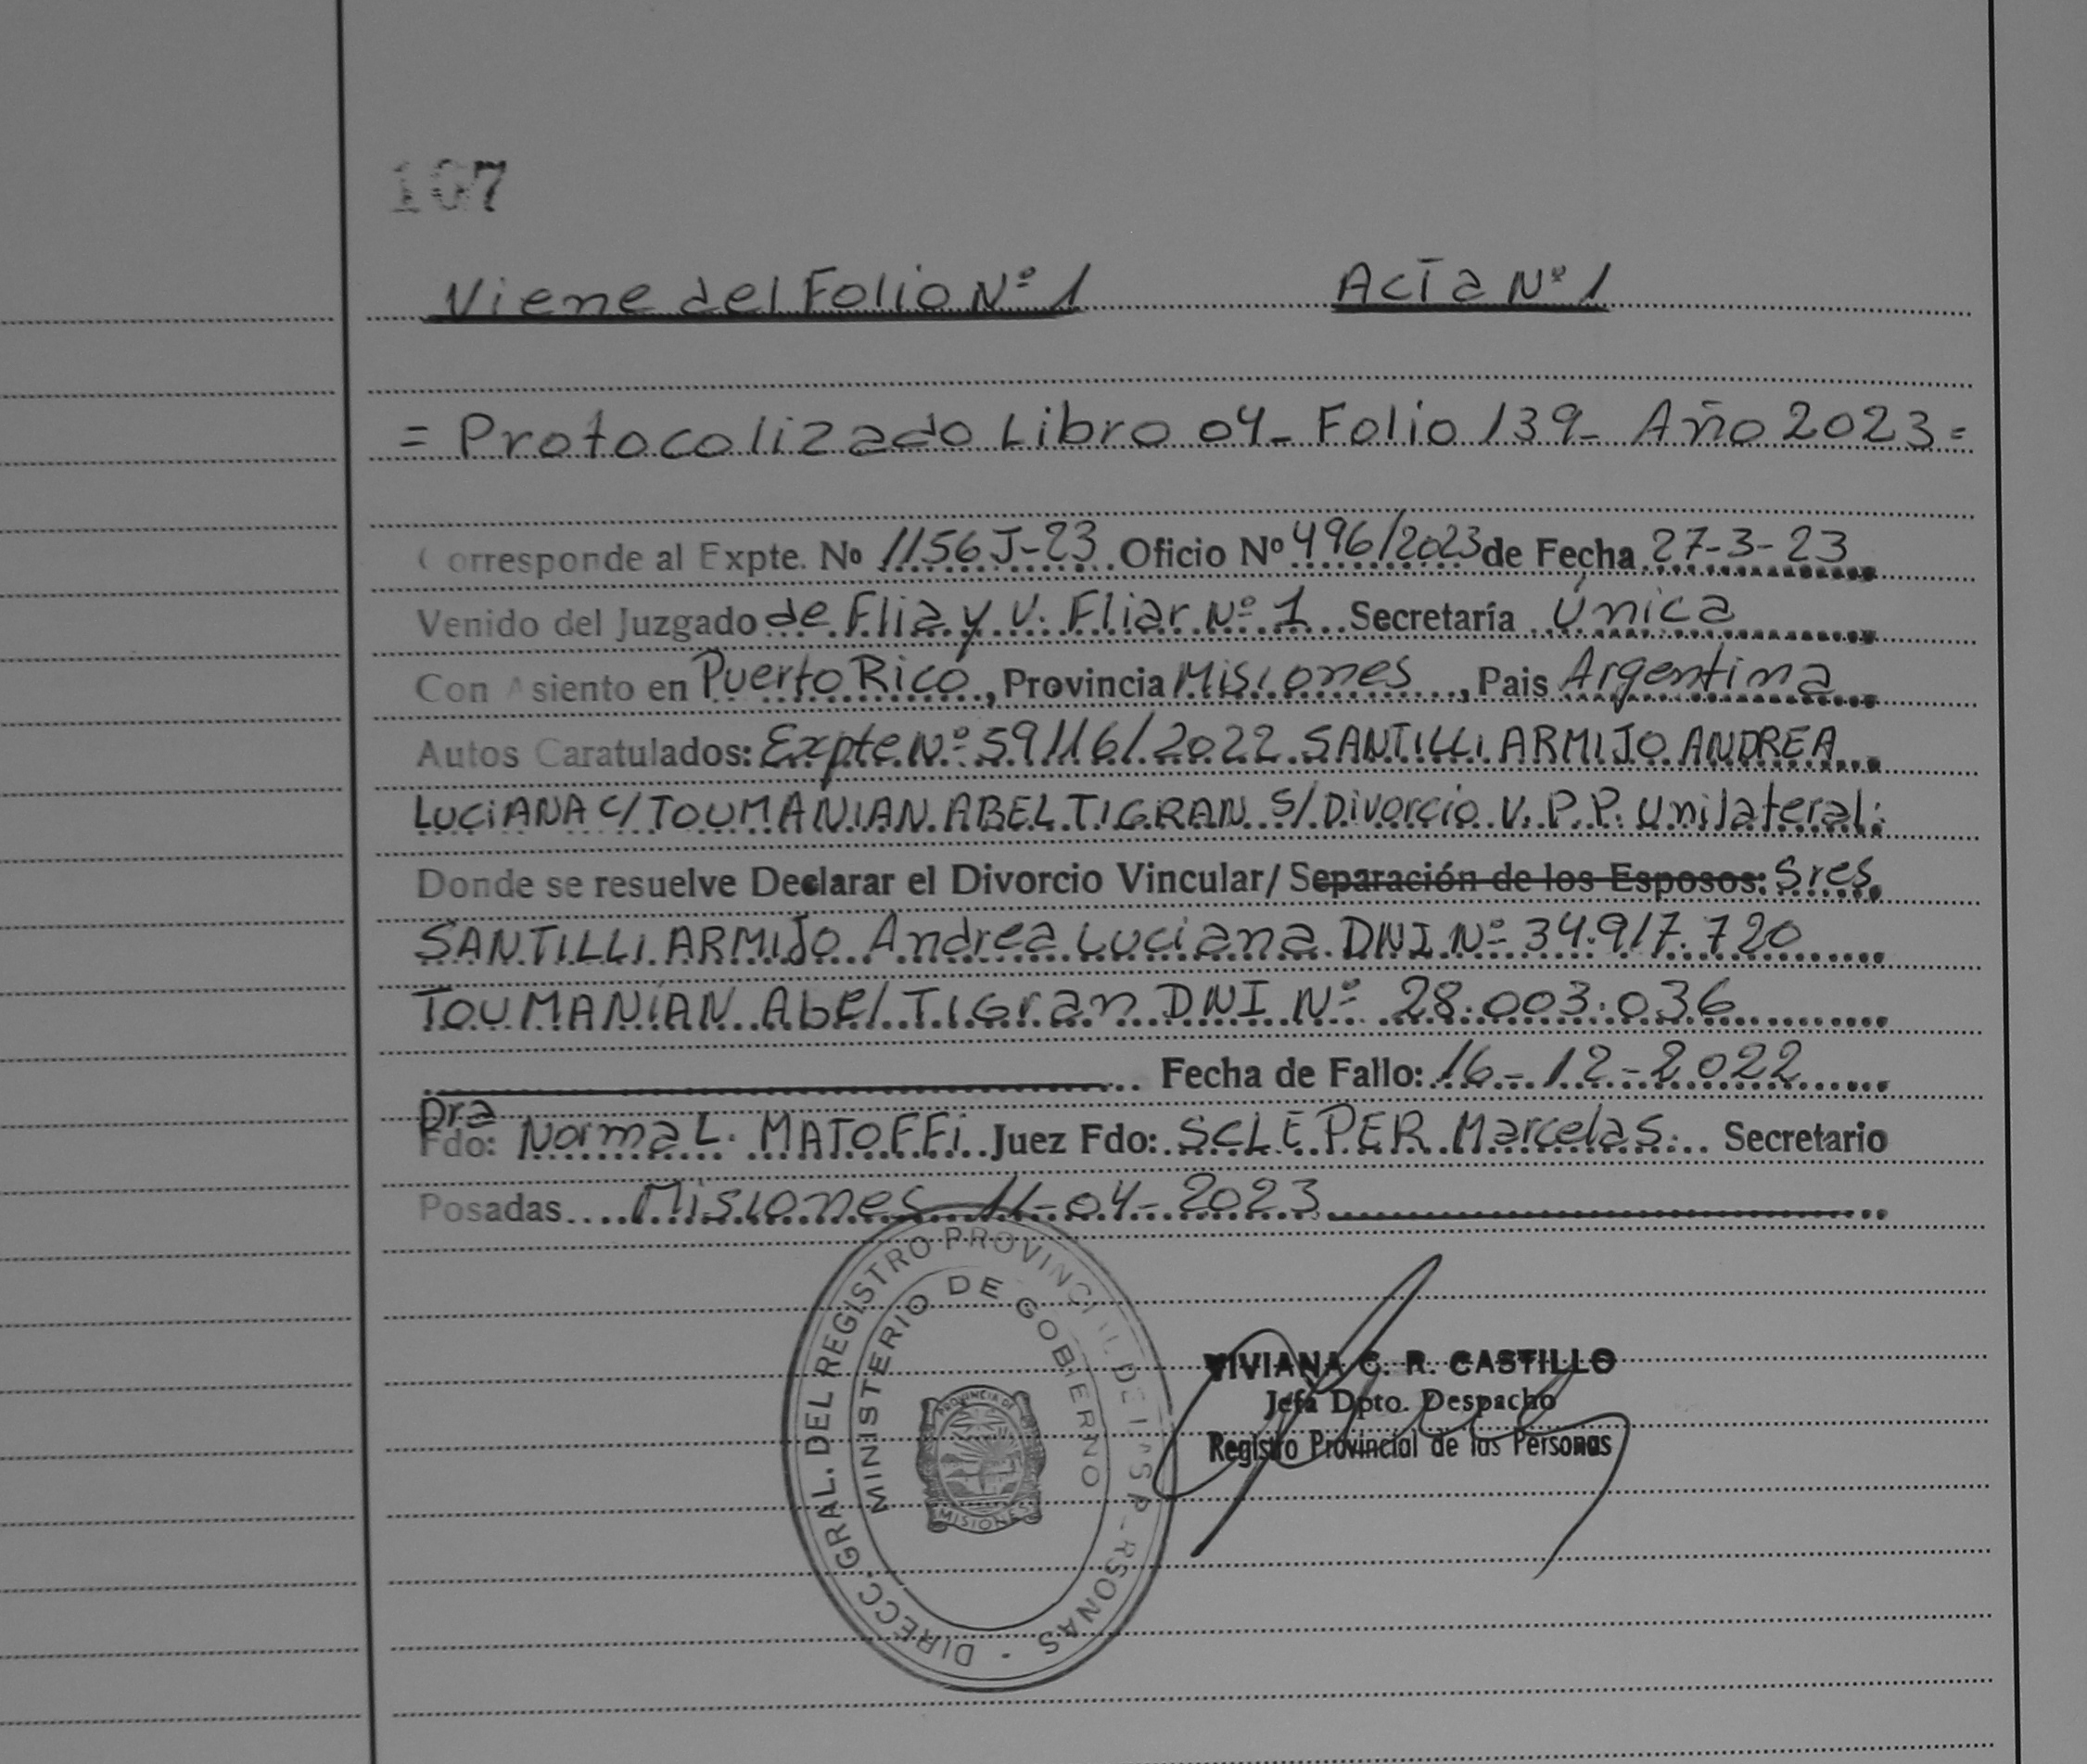 107
Viene del Folio Nº 1 Acta Nº 1
= Protocolizado Libro 04_ Folio 139_ Año 2023=
Corresponde al Expte. No 1156 J-23 Oficio Nº 496/2023 de Fecha 27-3-23
Venido del Juzgado de Flia y V. Fliar Nº 1 Secretaría Única
Con Asiento en Puerto Rico, Provincia Misiones, Pais Argentina
Autos Caratulados: Expte Nº 59116/2022 SANTILLI ARMIJO ANDREA
LUCIANA C/ TOUMANIAN ABEL TIGRAN S/ Divorcio V. P. P. Unilateral:
Donde se resuelve Declarar el Divorcio Vincular/ Separación de los Esposos: Sres
SANTILLI ARMIJO Andrea Luciana DNI Nº 34.917.720
TOUMANIAN Abel TIGran DNI Nº 28.003.036
Fecha de Fallo: 16-12-2022
Dra
Fdo: Norma L. MATOFFi Juez Fdo: SCLEPER Marcela S. Secretario
Posadas Misiones 11-04-2023
DIRECC. GRAL. DEL REGISTRO PROVINCIAL DE LAS PERSONAS
MINISTERIO DE GOBIERNO
PROVINCIA DE
MISIONES
VIVIANA C. R. CASTILLO
Jefa Dpto. Despacho
Registro Provincial de las Personas